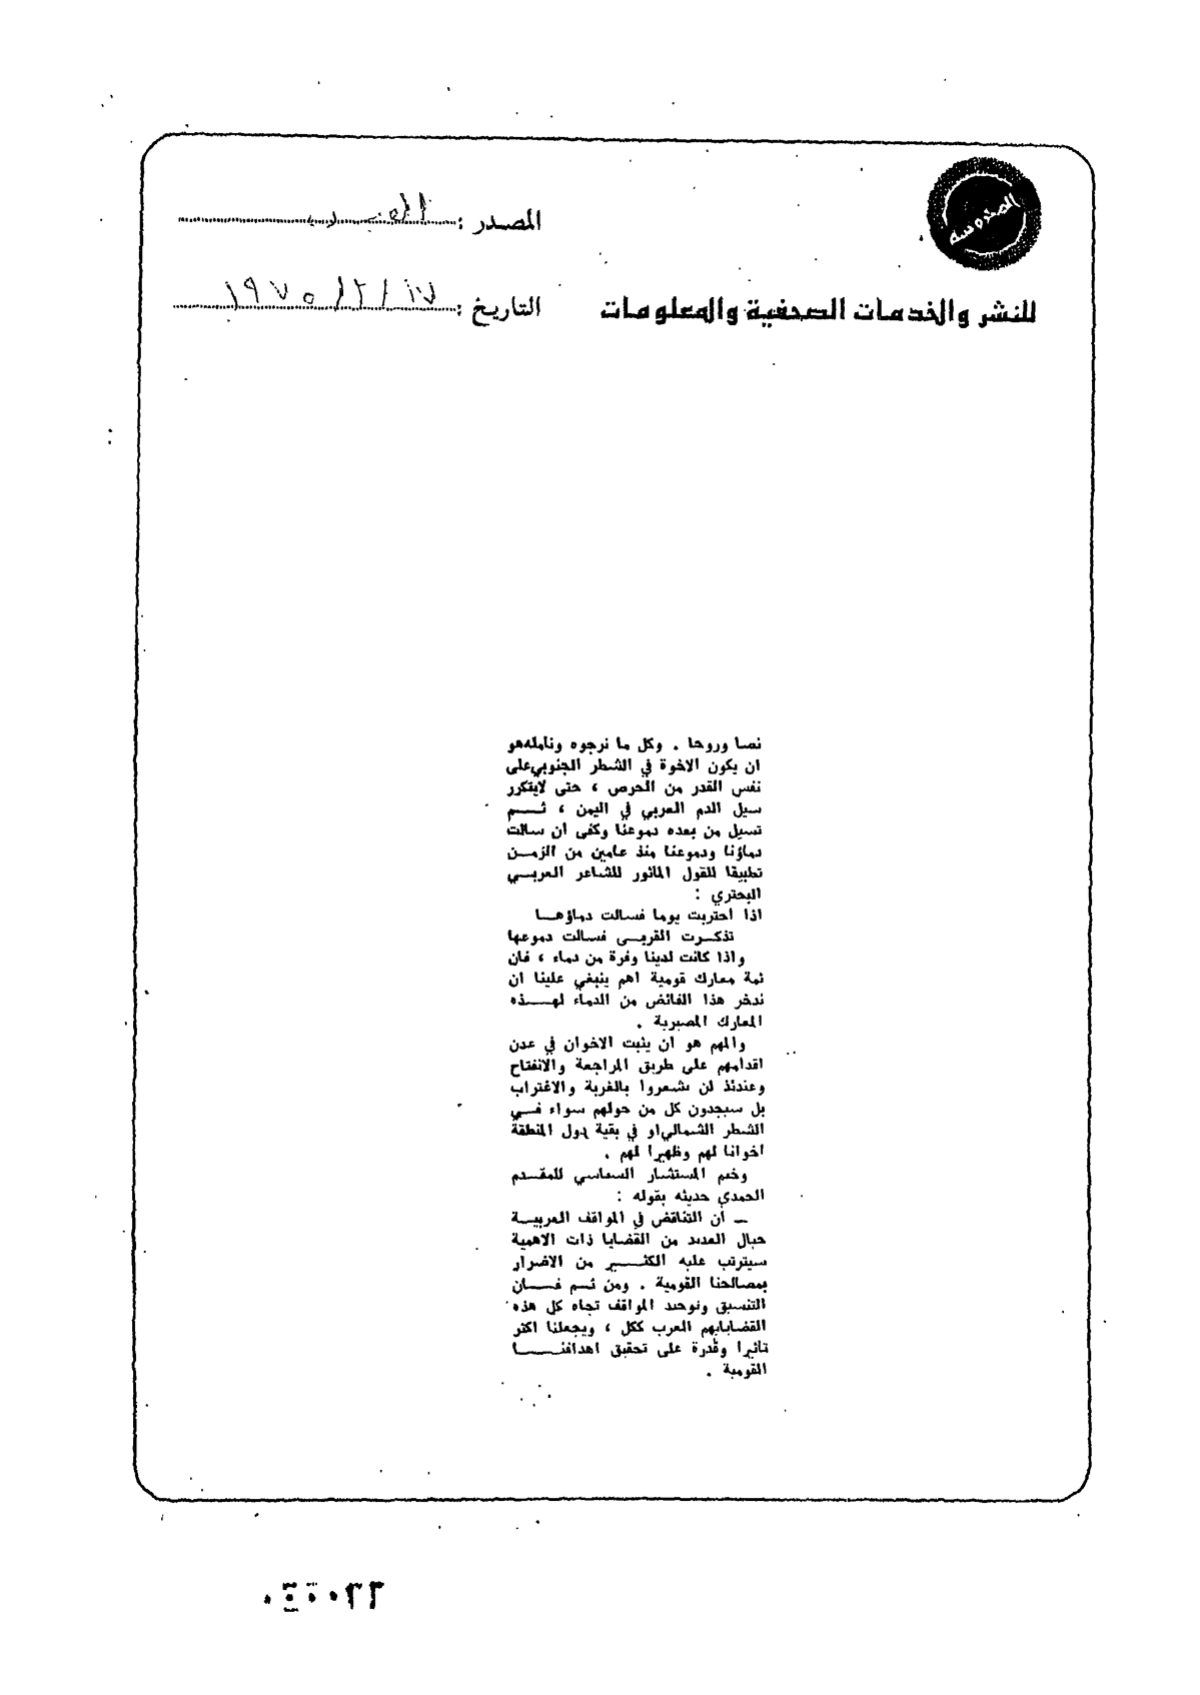 المحروسة
للنشر والخدمات الصحفية والمعلومات
المصدر :
التاريخ : ١٧ / ٢ / ١٩٧٥
نصا وروحا . وكل ما نرجوه ونامله هو
ان يكون الاخوة في الشطر الجنوبي على
نفس القدر من الحرص ، حتى لايتكرر
سيل الدم العربي في اليمن ، ثـــم
تسيل من بعده دموعنا وكفى ان سالت
دماؤنا ودموعنا منذ عامين من الزمـن
تطبيقا للقول المأثور للشاعر العربـي
البحتري :
اذا احتربت يوما فسالت دماؤهـا
تذكـرت القربـى فسالت دموعها
واذا كانت لدينا وفرة من دماء ، فان
ثمة معارك قومية اهم ينبغي علينا ان
ندخر هذا الفائض من الدماء لهـــذه
المعارك المصيرية .
والمهم هو ان يثبت الاخوان في عدن
اقدامهم على طريق المراجعة والانفتاح
وعندئذ لن يشعروا بالغربة والاغتراب
بل سيجدون كل من حولهم سواء فــي
الشطر الشمالي او في بقية دول المنطقة
اخوانا لهم وظهيرا لهم .
وختم المستشار السياسي للمقـدم
الحمدي حديثه بقوله :
ــ أن التناقض في المواقف العربيـة
حيال العديد من القضايا ذات الاهمية
سيترتب عليه الكثـــير من الاضرار
بمصالحنا القومية . ومن ثـم فـــان
التنسيق وتوحيد المواقف تجاه كل هذه
القضايا يهم العرب ككل ، ويجعلنا اكثر
تاثيرا وقدرة على تحقيق اهدافنـــا
القومية .